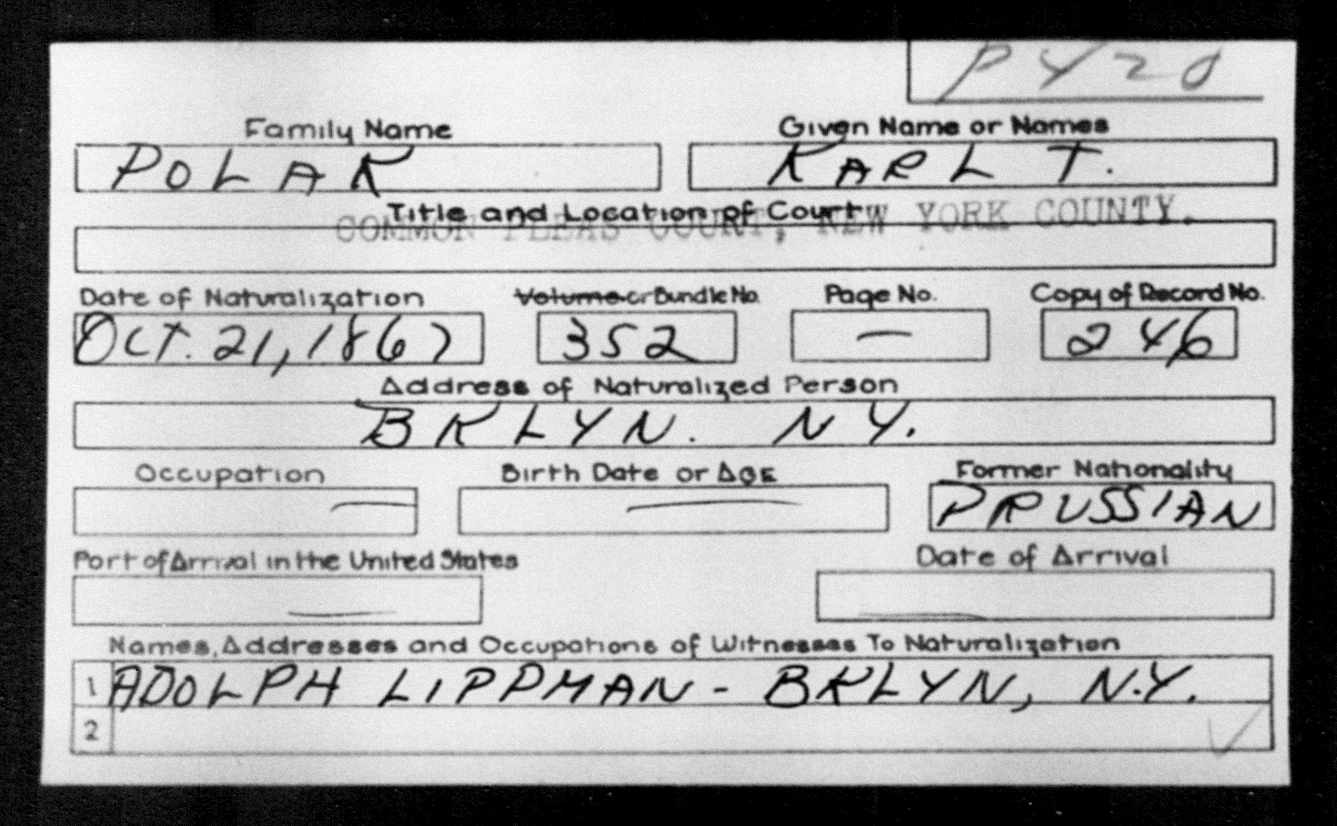 P420
Family Name Given Name or Names
POLAK KARL T.
Title and Location of Court
COMMON PLEAS COURT, NEW YORK COUNTY.
Date of Naturalization Volume or Bundle No. Page No. Copy of Record No.
OCT. 21, 1867 352 — 246
Address of Naturalized Person
BKLYN. NY.
Occupation Birth Date or Age Former Nationality
— — PRUSSIAN
Port of Arrival in the United States Date of Arrival
— —
Names, Addresses and Occupations of Witnesses To Naturalization
1 ADOLPH LIPPMAN - BKLYN, N.Y.
2